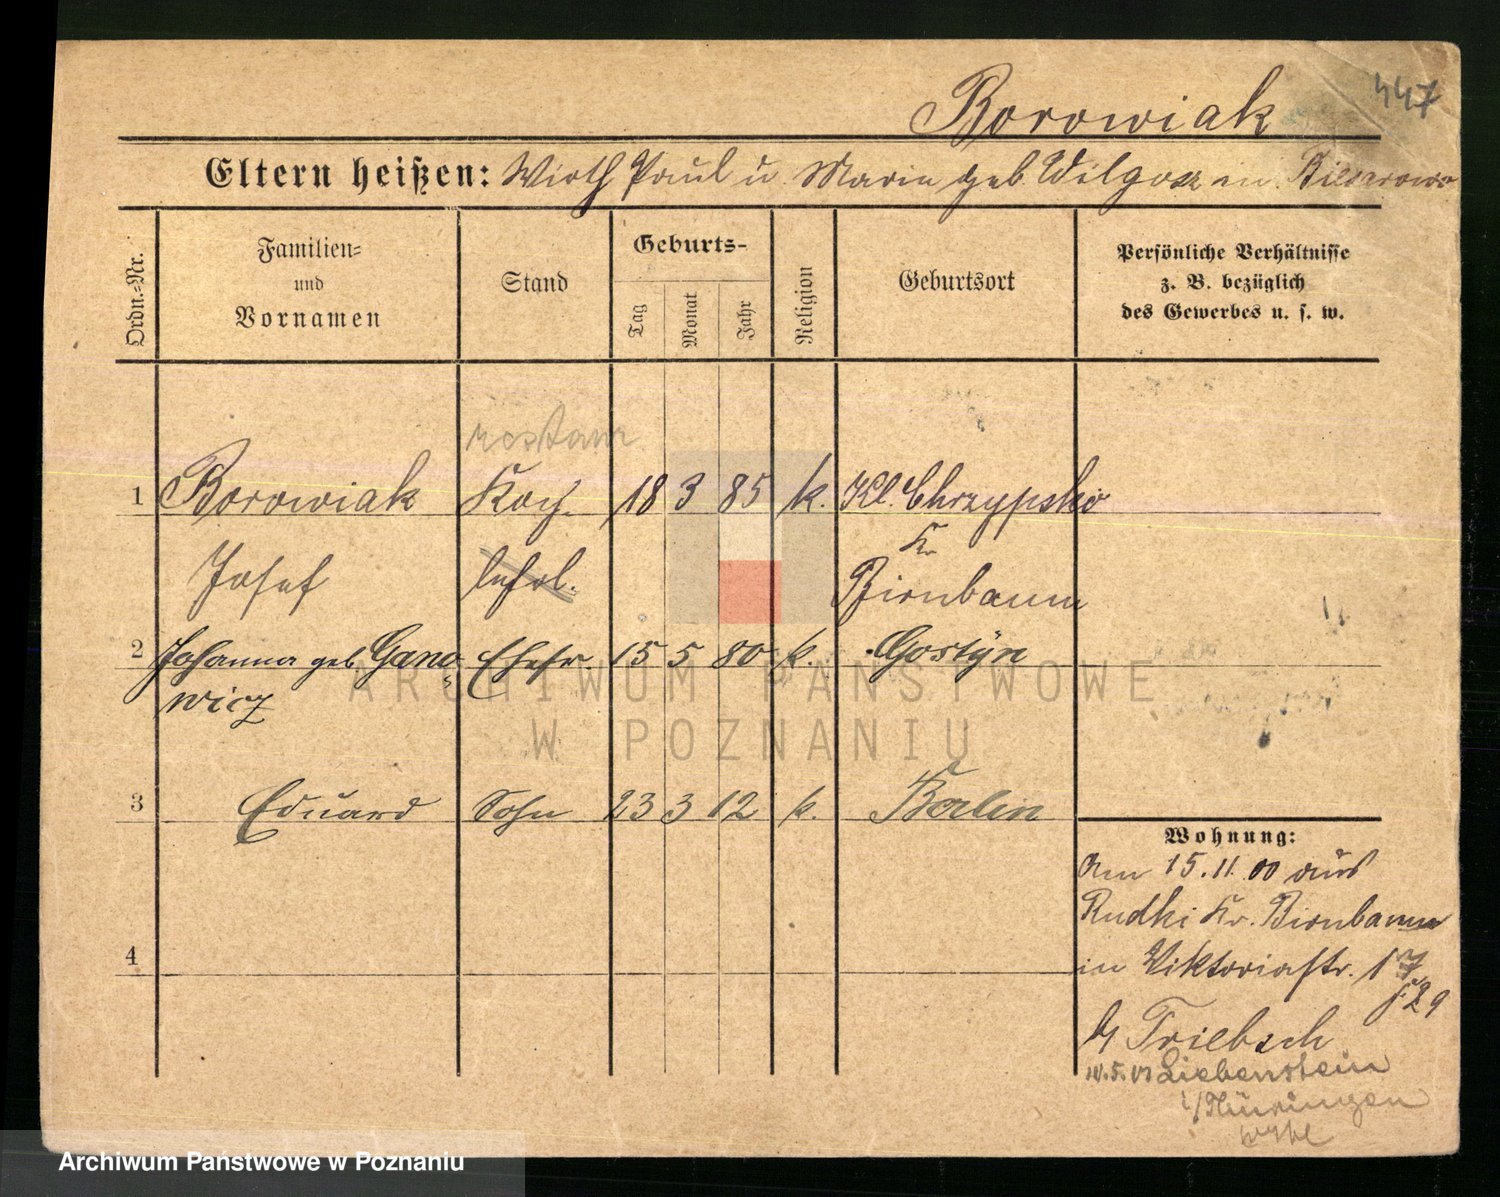 447
Borowiak
Eltern heißen: Wirth Paul u Marie geb. Wilgosz in
Ordn.-Nr.
Familien-
und
Vornamen
Stand
Geburts-
Tag
Monat
Jahr
Religion
Geburtsort
Persönliche Verhältnisse
z. B. bezüglich
des Gewerbes u. s. w.
1 Borowiak Koch 18 3 85 k. Kl. Chrzypsko
Kr
Josef lehrl. Birnbaum
2 Johanna geb. Gano- Ehefr. 15 5 80 k. Gostÿn
wicz
3 Eduard Sohn 23 3 12 k. Berlin
4
Wohnung:
Am 15.11.00 aus
Rudki Kr. Birnbaum
in Viktoriastr. 17
b/ Triebsch
Liebenstein
i/Thüringen
ARCHIWUM PAŃSTWOWE
W POZNANIU
Archiwum Państwowe w Poznaniu